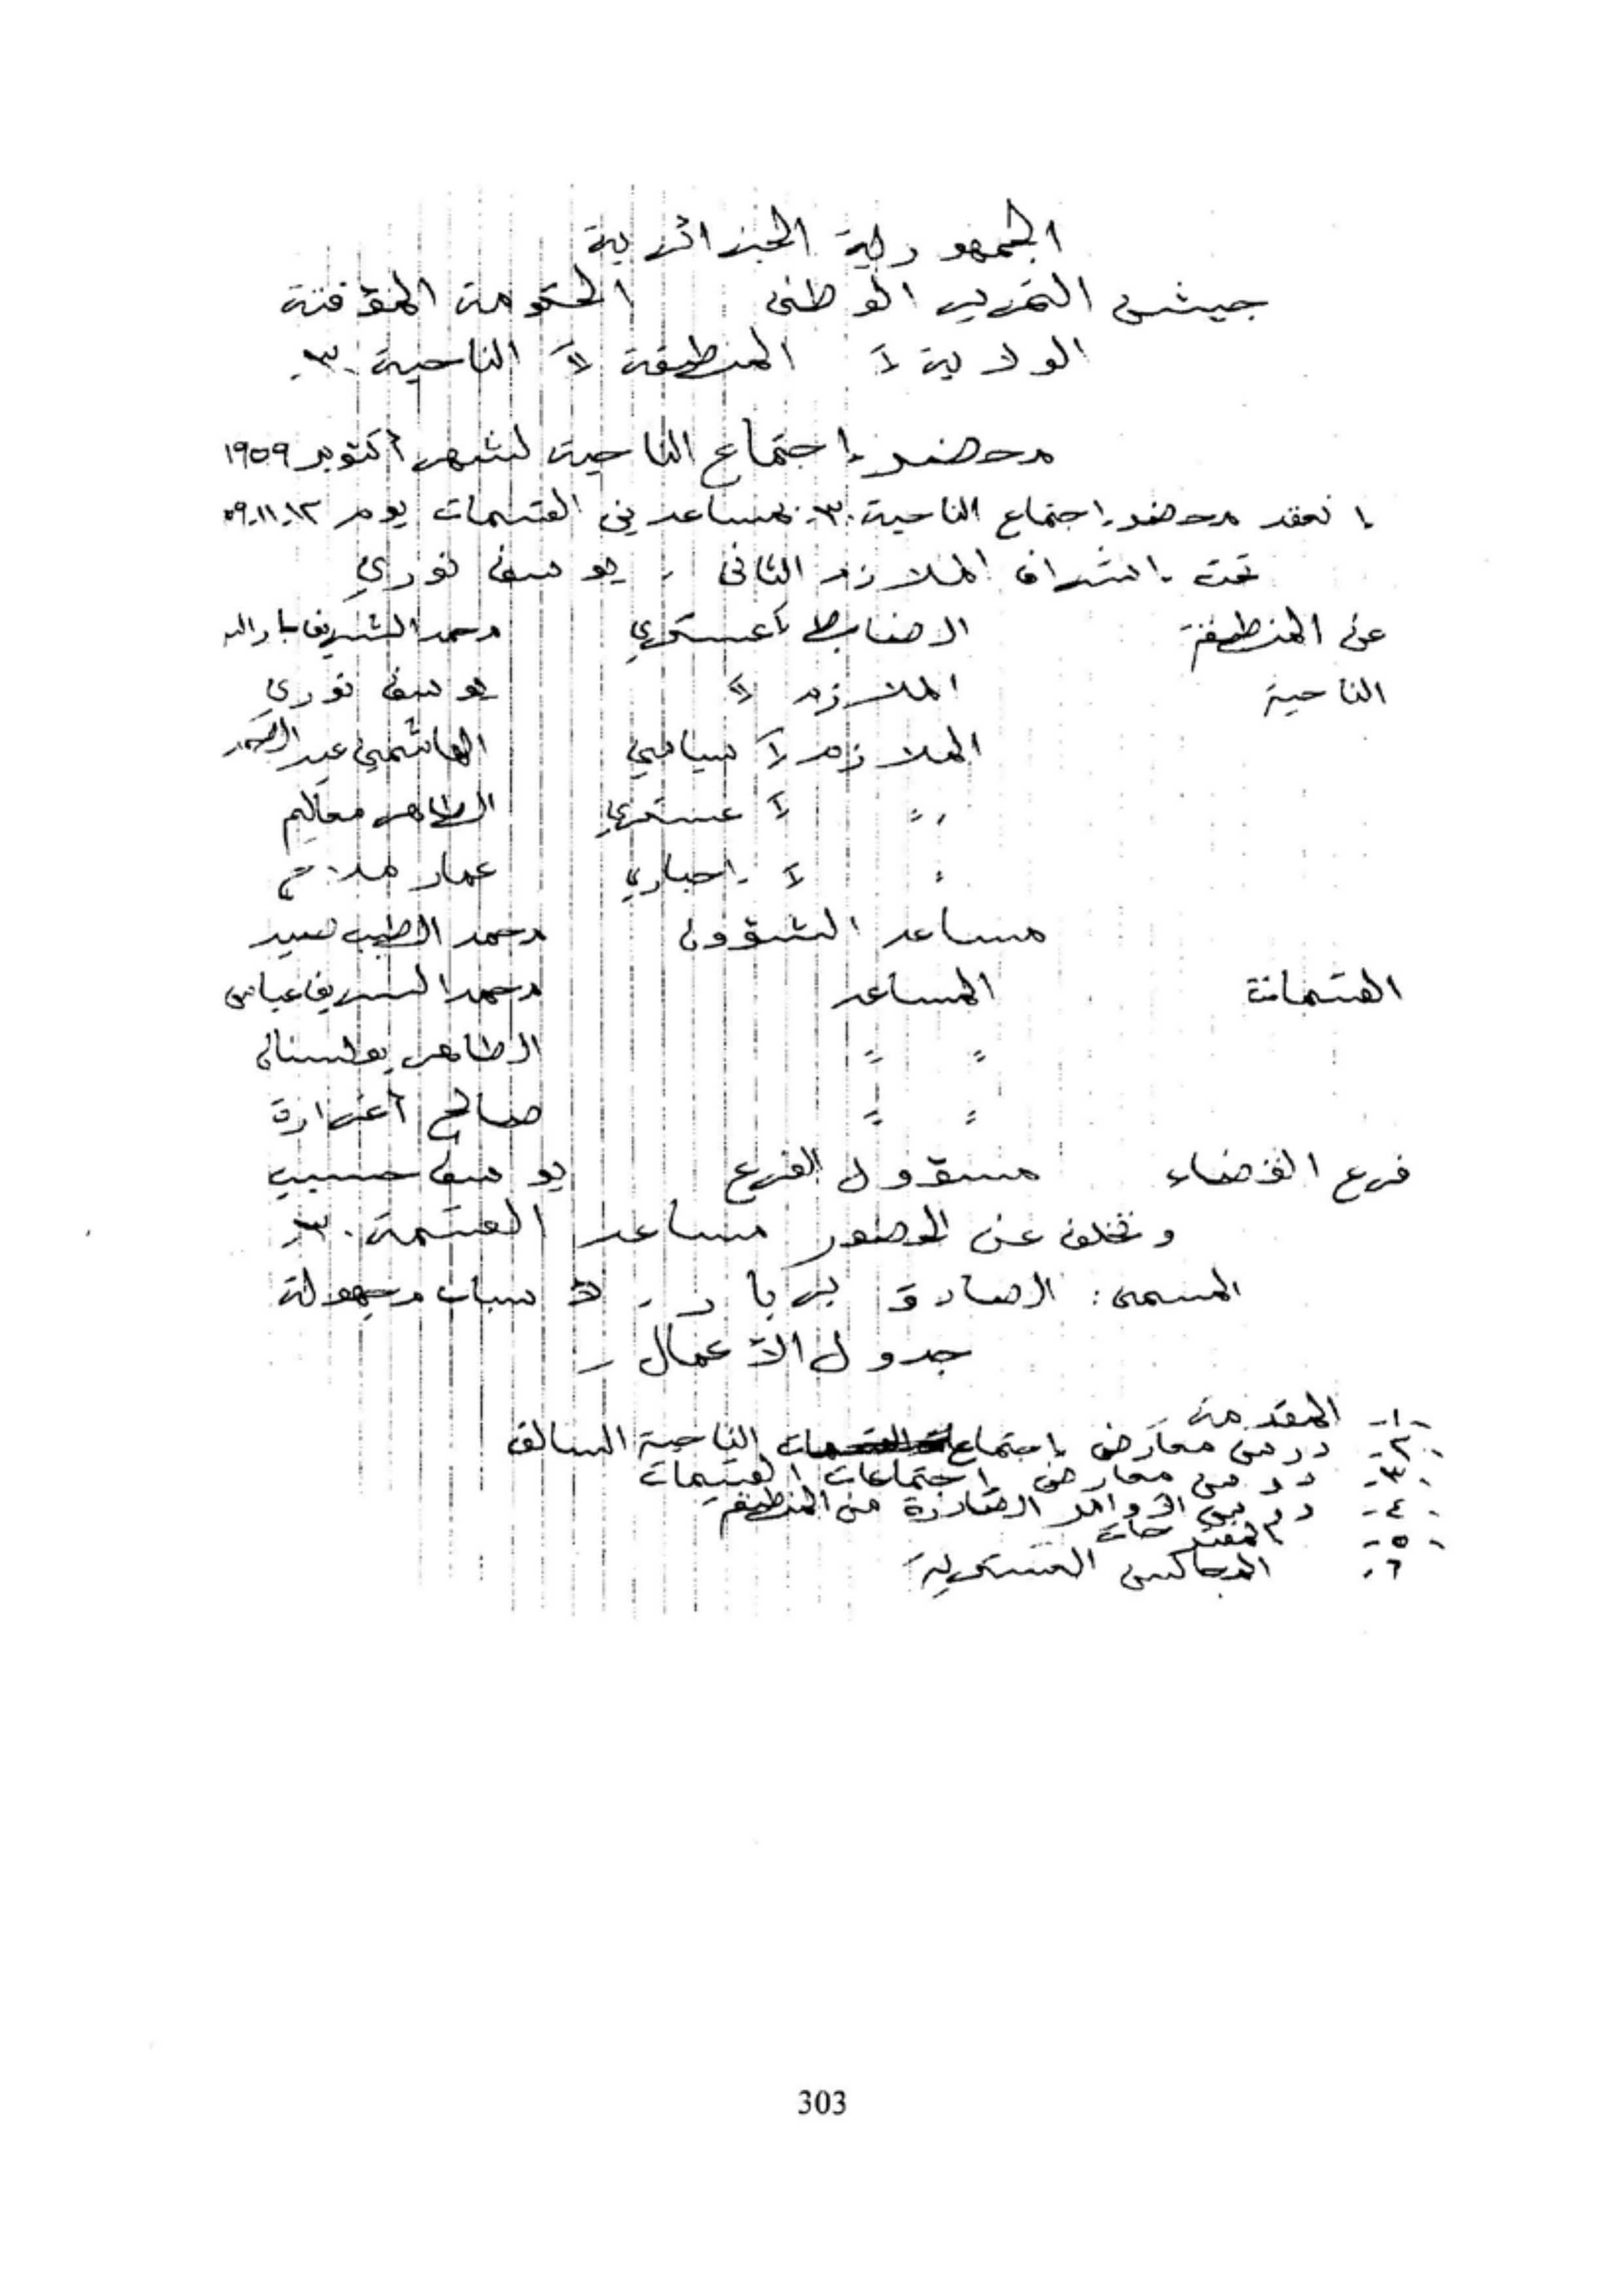 الجمهورية الجزائرية
جيش التحرير الوطني الحكومة المؤقتة
الولاية المنطقة الناحية ٣.
محضر إجتماع الناحية لشهر أكتوبر ١٩٥٩
إنعقد محضر إجتماع الناحية ٣. بمساعدين القسمات يوم ١٢.١١.٥٩
تحت إشراف الملازم الثاني . يوسف نوري
عن المنطقة الضابط عسكري محمد الشريف
الناحية الملازم يوسف نوري
الملازم سياسي الهاشمي عبد الصمد
" عسكري الطاهر معاليم
" إخباري عمار ملاح
مساعد الشؤون محمد الطيب سعيد
القسمات المساعد محمد الشريف عباس
" " الطاهر
" " صالح أغرارة
فرع القضاء مسؤول الفرع يوسف حسيب
وتخلف عن الحضور مساعد القسمة ٣.
المسمى: الصادق برباد. لأسباب مجهولة
جدول الأعمال -
١- المقدمة
٢- درس معارض إجتماع الناحية السالف
٣- درس معارض إجتماعات القسمات
٤- درس الأوامر الصادرة من المنطقة
٥- المقترحات
٦- المجالس العسكرية
303